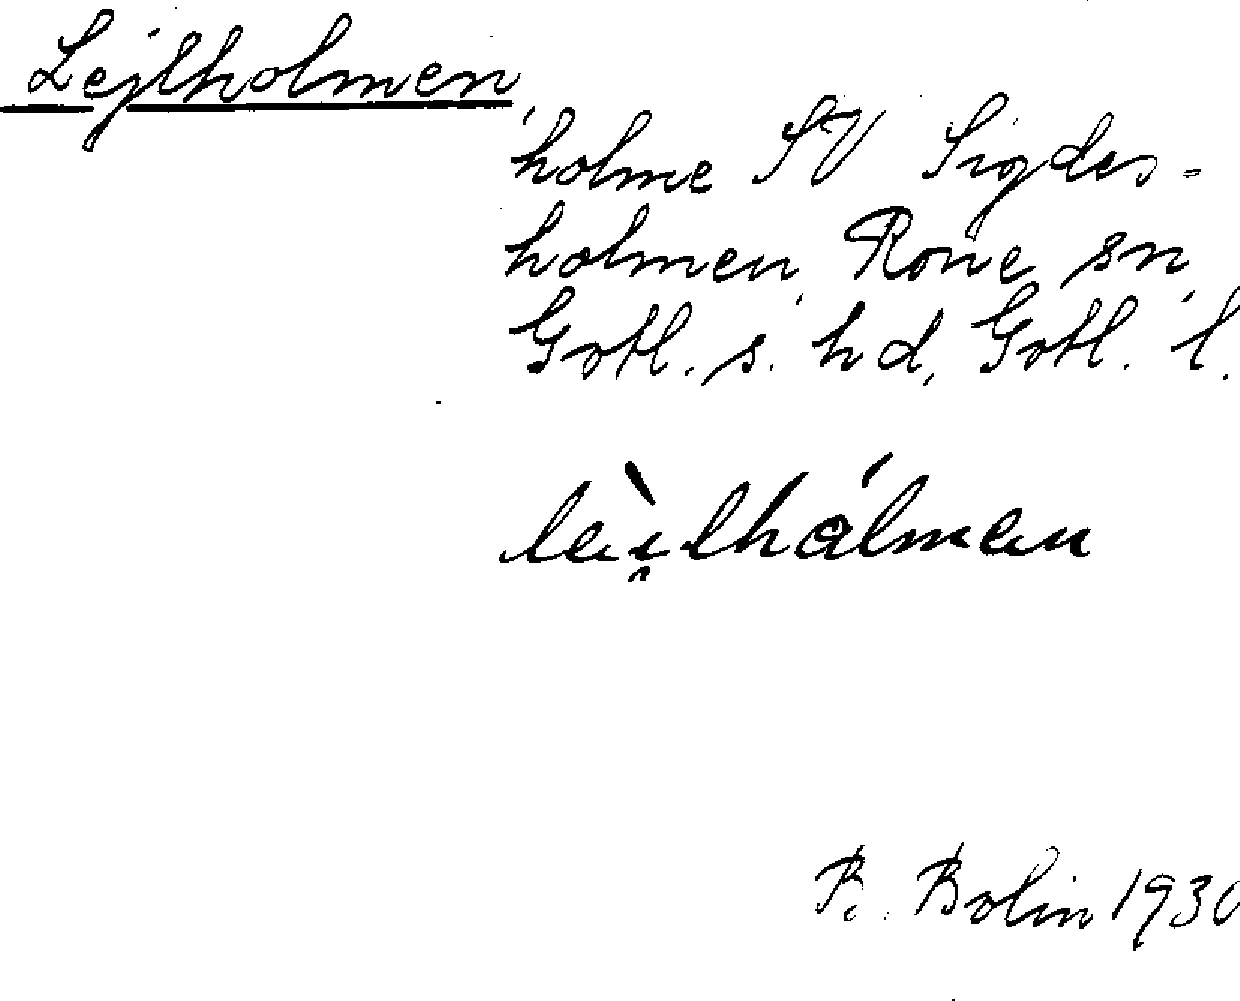 Lejlholmen
holme SV Sigdes-
holmen, Rone sn,
Gotl. s. hd, Gotl. l.
lèi̯lhålmen
B. Bolin 1930